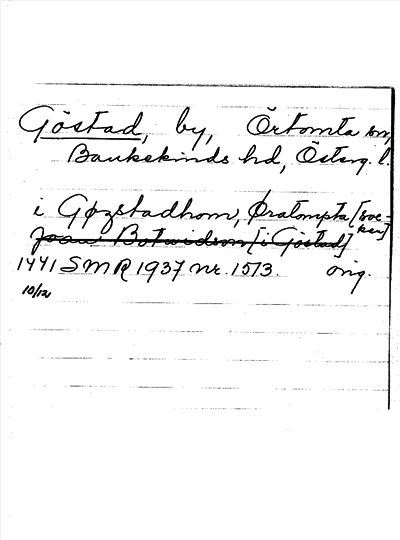 Göstad, by, Örtomta sn,
Bankekinds hd, Österg. l.
i Gøzstadhom, Øratompta [socken]
Joan Botvidson [i Göstad]
1441 SMR 1937 nr. 1513. orig.
10/12